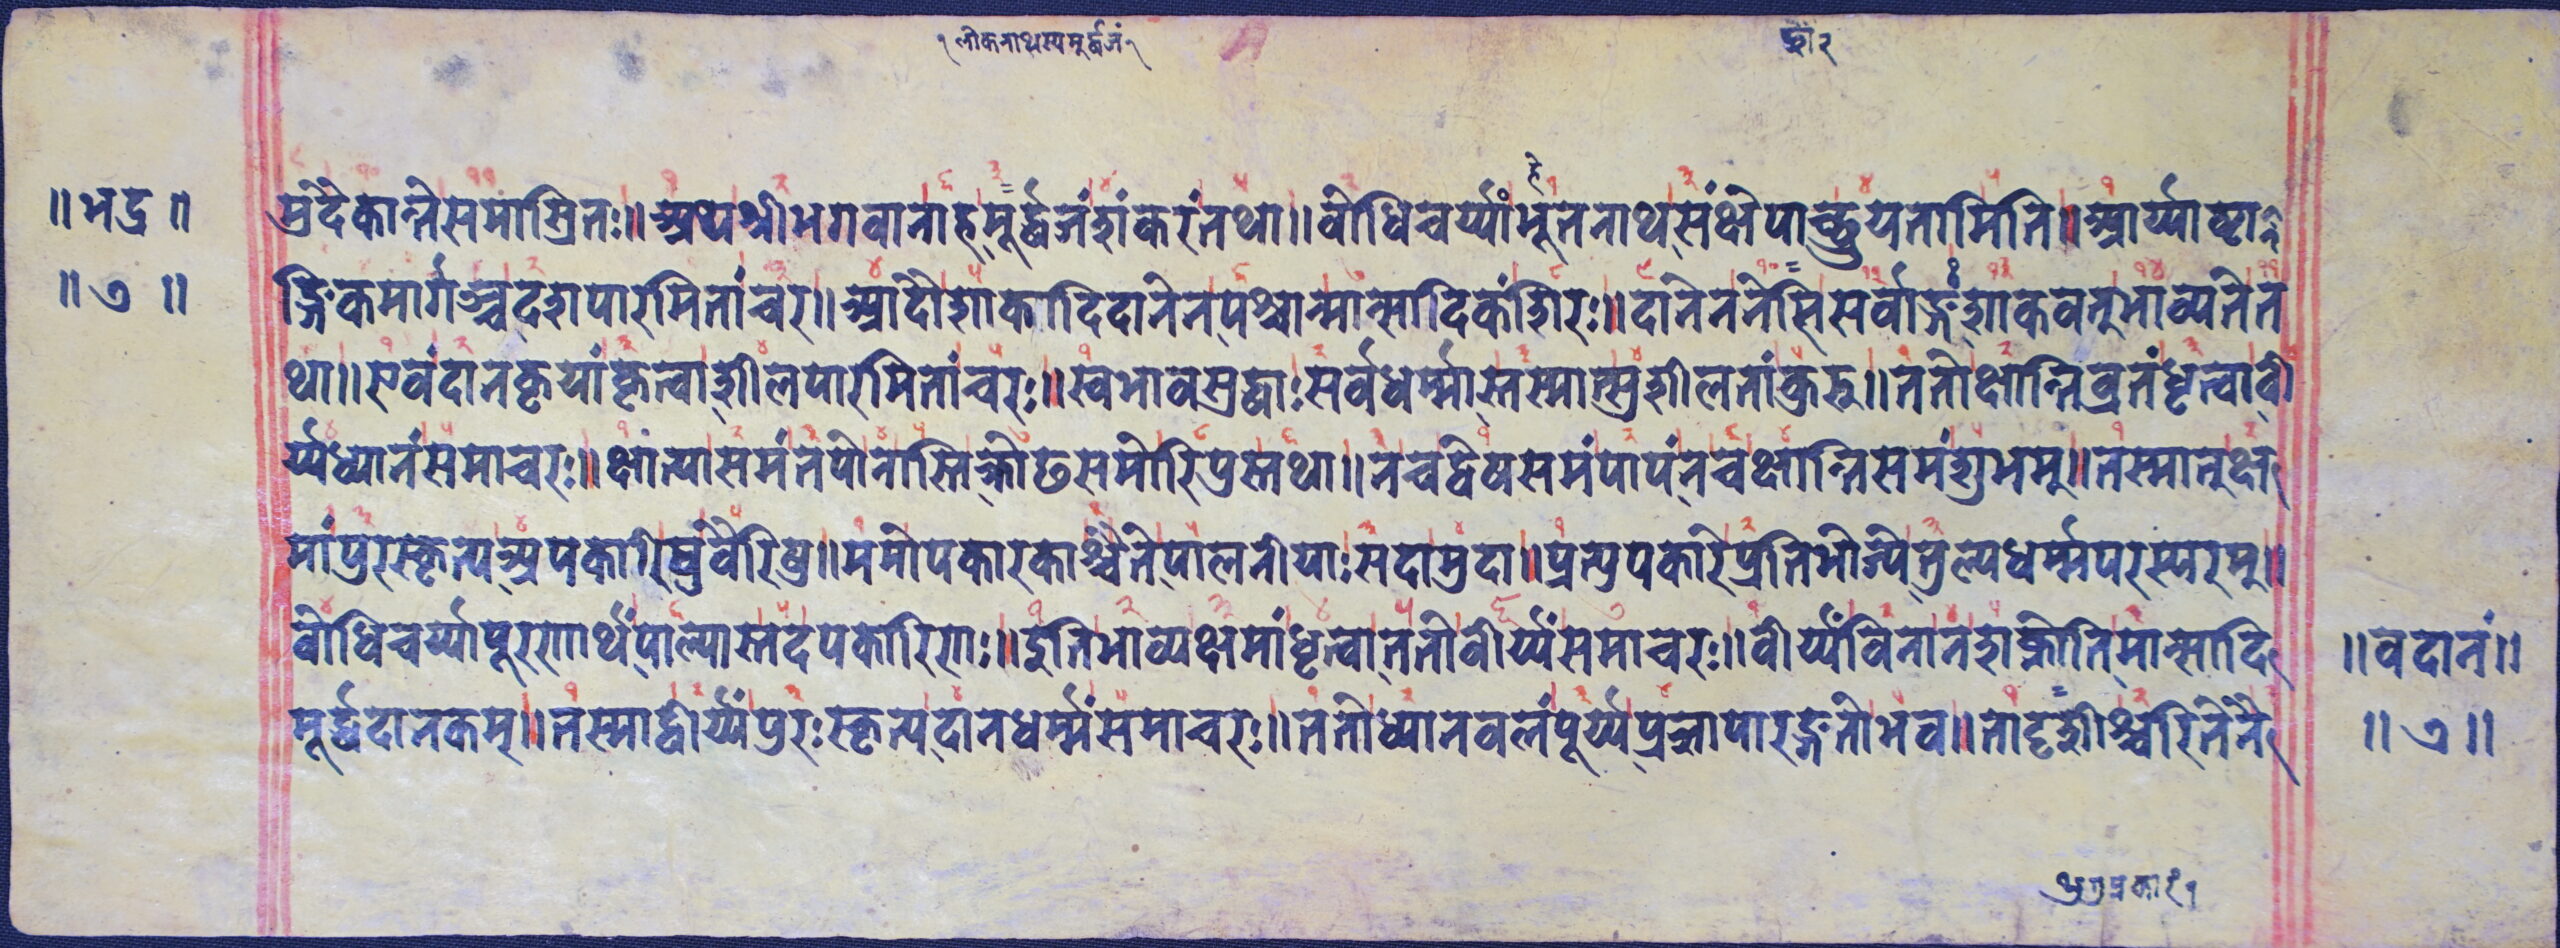 लोकनाथस्य मूर्द्धजं
॥ भद्र ॥
म्रेदैकान्तेसमाश्रितः॥ अथश्रीभगवानाहमूर्द्धजंशंकरंतथा॥ बोधिचर्य्यांभूतनाथसंक्षेपाच्छ्रुयतामिति॥ आर्य्याष्टा
॥ ७ ॥
ङ्गिकमार्गञ्चदशपारमितांचर॥ आदौशाकादिदानेनपश्चान्मान्सादिकंशिरः॥ दानेननेसिसर्वाङ्गंशाकवत्तुभाव्यतेत
था॥ एवंदानकृयांकृत्वाशीलपारमितांचरः॥ स्वभावस्रद्धाःसर्वधर्म्मास्तस्मात्सुशीलतांकुरु॥ ततोक्षान्तिव्रतंधृत्वावी
र्य्यध्यानंसमाचरः॥ क्षांत्यासमंतपोनास्तिक्रोधसमोरिपुस्तथा॥ नचद्वेषसमंपापंनचक्षान्तिसमंशुभम्॥ तस्मात्तुक्ष
मांपुरस्कृत्यअपकारीषुवैरिषु॥ ममोपकारकाश्चैतेपालनीयाःसदामुदा॥ प्रत्युपकारेप्रतिभोज्येतुल्यधर्म्मपरस्परम्॥
बोधिचर्य्यापूरणार्थंपाल्यास्तदपकारिणाः॥ इतिभाव्यक्षमांधृत्वाततोवीर्य्यंसमाचरः॥ वीर्य्यंविनानशक्नोतिमान्सादि
॥ वदानं॥
मूर्द्धदानकम्॥ तस्माद्वीर्य्यंपुरःस्कृत्यदानधर्म्मंसमाचरः॥ ततोध्यानवलंपूर्य्यप्रज्ञापारङ्गतोभव॥ तादृशीश्चरितेनै
॥ ७ ॥